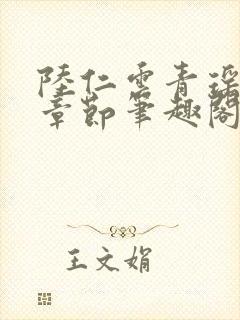 陸仁雲青瑤
章節筆趣閣
王文娟